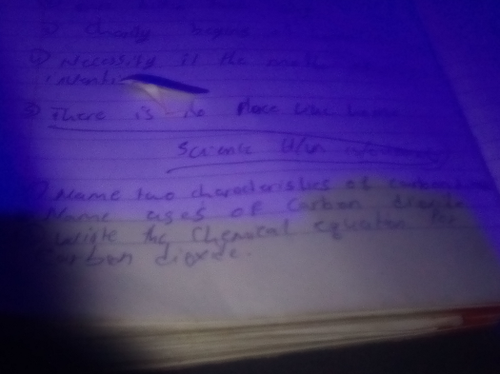 Charity begins
② Necessity is the moth
inventi
③ There is no Place like home
Science H/W
1) Name two characteristics of carbon
Name uses of Carbon dioxide
Write the Chemical equation for
Carbon dioxide.